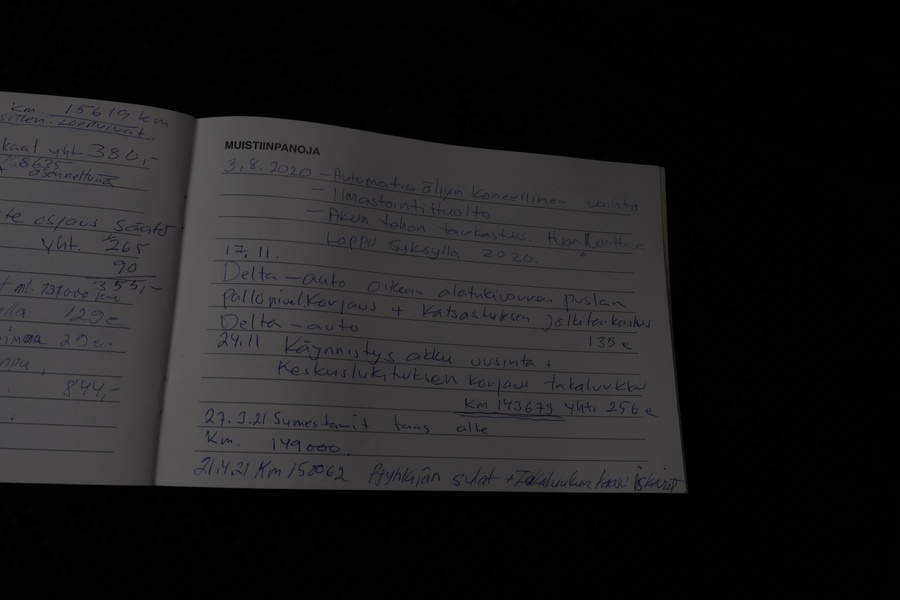 km. 15619 km
sitten. Loppuivat.
kaat yht 380,-
asennettuna
osjaus säätö
yht. 265
90
355,-
ml. 138000 km
lla 129e
29e.
ppu,
844,-
MUISTIINPANOJA
3.8.2020 - Automatia öljyn koneellinen vaihto
- Ilmastointi huolto
- Akun tehon tarkastus.
Loppu syksyllä 2020.
17.11.
Delta-auto oikean alatukivarren puslan
pallonivel Korjaus + Katsastuksen jälkitarkastus
Delta-auto 135 e
24.11 Käynnistys akku uusinta +
Keskuslukituksen korjaus takaluukku
Km 143679 yht. 256 e
27.3.21 taas alle
Km. 149000.
21.4.21 Km 150062 Pyyhkijän sulat + Takaluukun kaasu iskarit